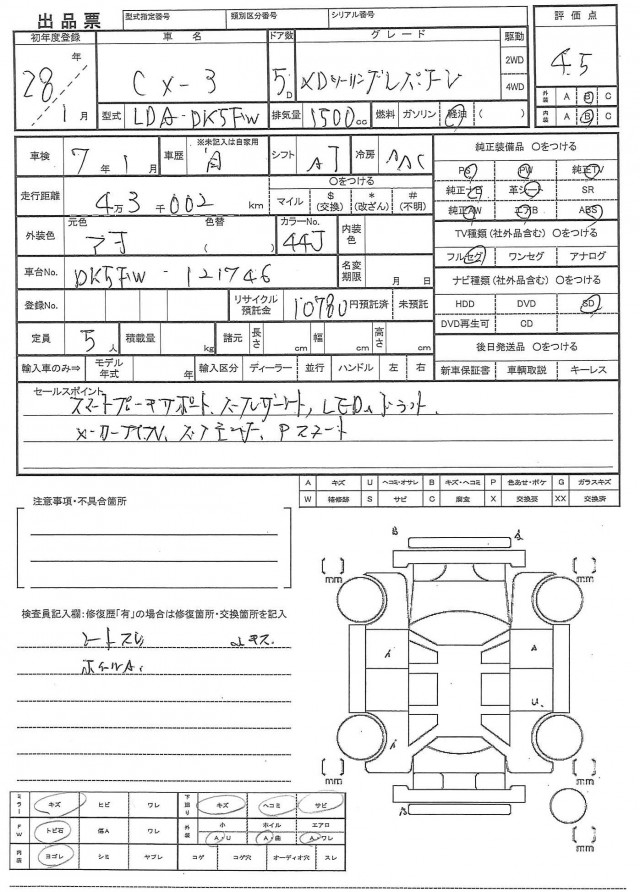 出品票
型式指定番号 類別区分番号 シリアル番号
初年度登録 車名 ドア数 グレード 駆動 評価点
28年 1月 CX-3 5D XDツーリングLパッケージ 2WD 4WD 4.5
外装 A B C
内装 A B C
型式 LDA-DK5FW 排気量 1500cc 燃料 ガソリン 軽油 ( )
車検 7年 1月 車歴 ※未記入は自家用 自 シフト AT 冷房 AAC
純正装備品 〇をつける
PS PW 純正TV
純正ナビ 革シート SR
純正AW エアB ABS
走行距離 4万3千002km 〇をつける
マイル $(交換) *(改ざん) #(不明)
TV種類(社外品含む) 〇をつける
フルセグ ワンセグ アナログ
外装色 元色 色替 ( ) カラーNo. 44J 内装色
車台No. DK5FW-121746 名変期限 月 日
ナビ種類(社外品含む) 〇をつける
HDD DVD SD
DVD再生可 CD
登録No. リサイクル預託金 10780円預託済 未預託
定員 5人 積載量 kg 諸元 長さ cm 幅 cm 高さ cm
後日発送品 〇をつける
新車保証書 車輌取説 キーレス
輸入車のみ⇒ モデル年式 年 輸入区分 ディーラー 並行 ハンドル 左 右
セールスポイント
スマートブレーキサポート、
A キズ U ヘコミ・オサレ B キズ・ヘコミ P 色あせ・ボケ G ガラスキズ
W 補修跡 S サビ C 腐食 X 交換要 XX 交換済
注意事項・不具合箇所
B A
[ ] mm [ ] mm
検査員記入欄:修復歴「有」の場合は修復箇所・交換箇所を記入
シートスレ
ホイールA.
A
U
[ ] mm [ ] mm
B
[ ] mm
ミラー キズ ヒビ ワレ 下回り キズ ヘコミ サビ
FW トビ石 傷A ワレ 外装 小 A・U ホイル A・曲 エアロ A・ワレ
内装 ヨゴレ シミ ヤブレ コゲ コゲ穴 オーディオ穴 スレ